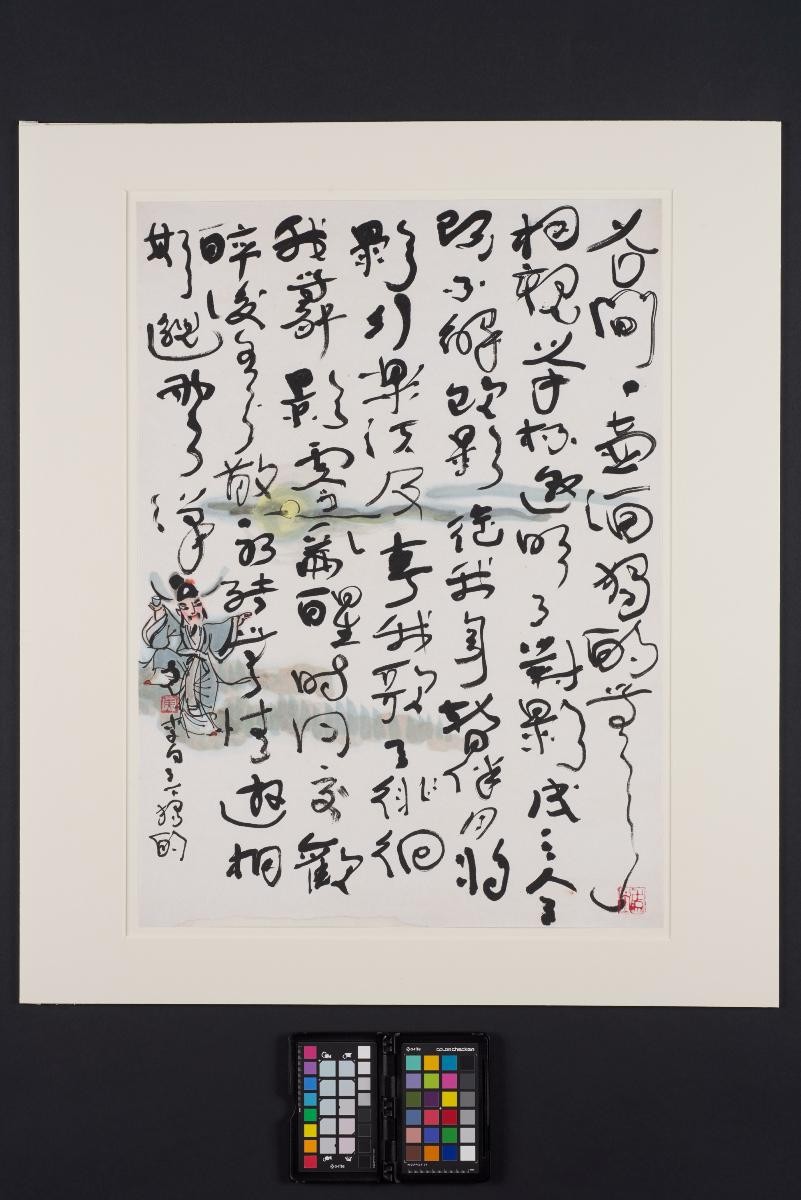 花間一壺酒獨酌無
相親舉杯邀明月對影成三人月
既不解飲影徒我身暫伴月將
影行樂須及春我歌月徘徊
我舞影零亂醒時同交歡
醉後各分散永結無情遊相
期邈雲漢
李白月下獨酌
colorchecker